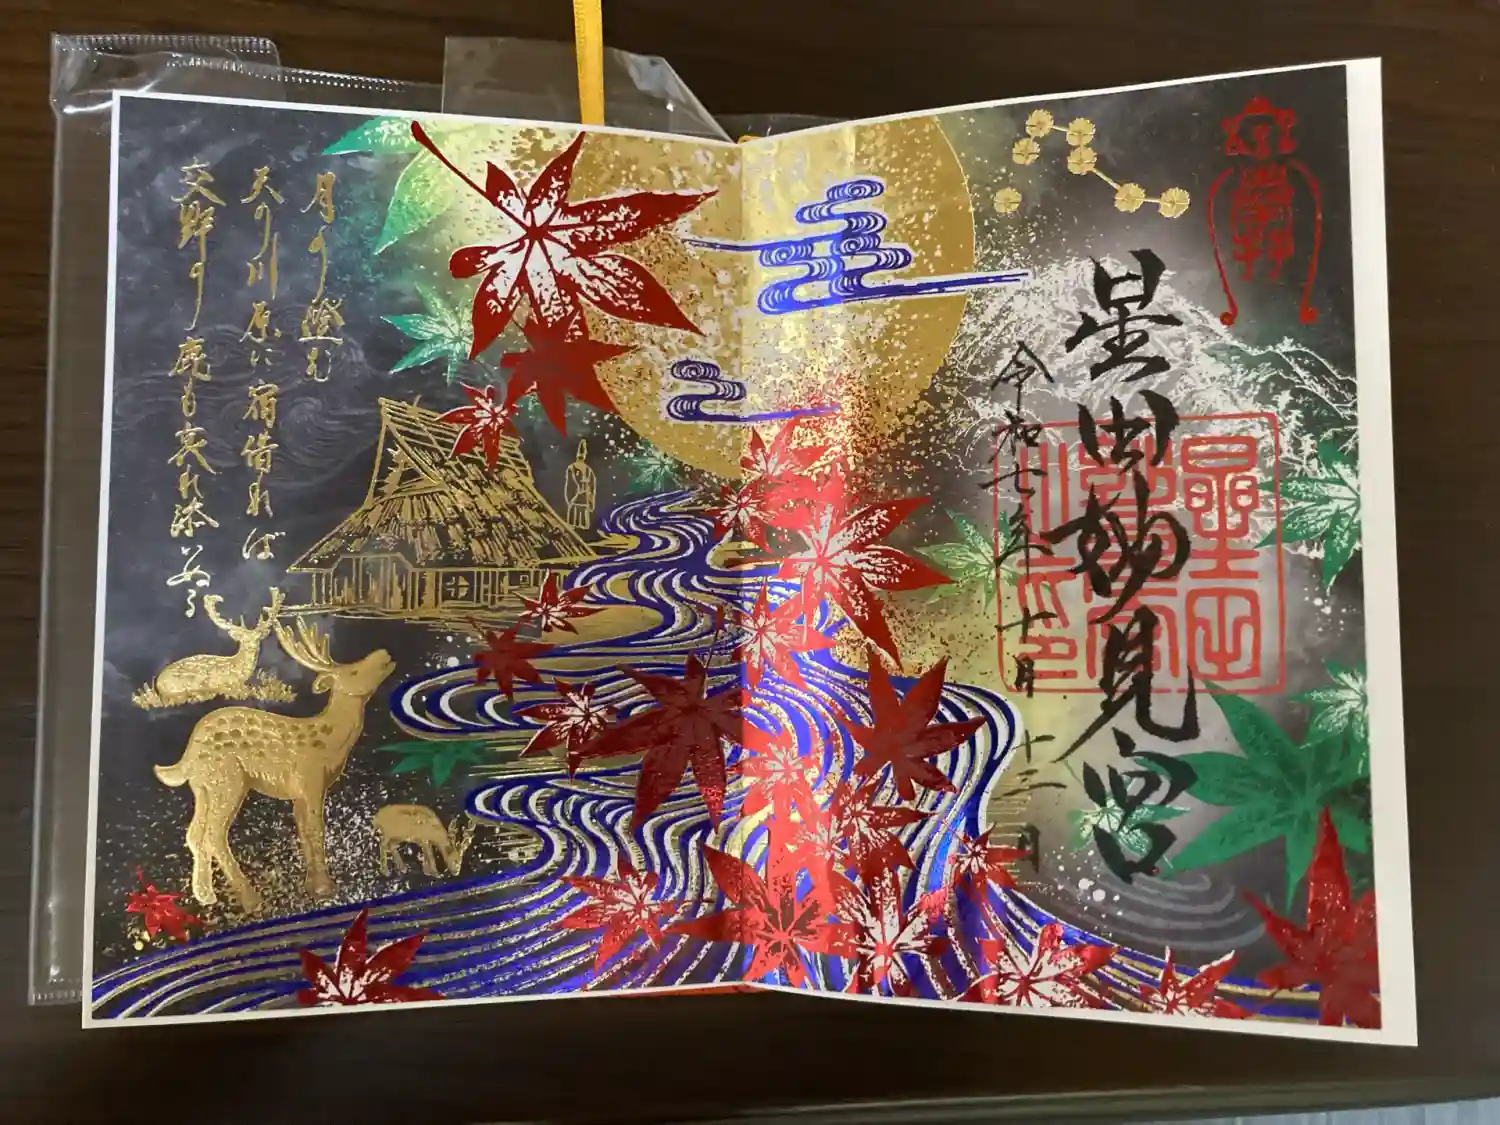 星田妙見宮
令和七年十月十三日
月の澄む
天の川原に宿借れば
交野の鹿も哀れ添いぬる